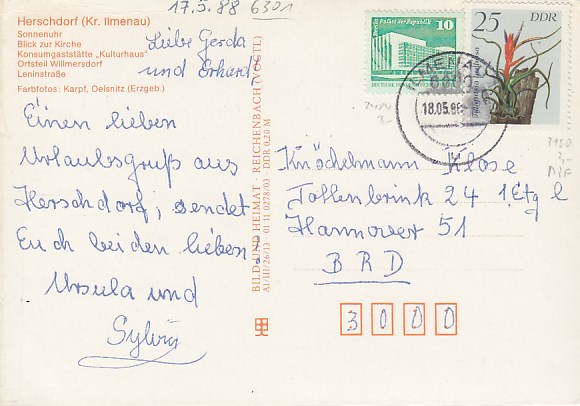 17.5.88 6301
Herschdorf (Kr. Ilmenau)
Sonnenuhr
Blick zur Kirche
Konsumgaststätte „Kulturhaus"
Ortsteil Willmersdorf
Leninstraße
Farbfotos: Karpf, Oelsnitz (Erzgeb.)
Liebe Gerda
und Erhardt
Einen lieben
Urlaubsgruß aus
Herschdorf, sendet
Euch beiden lieben
Ursula und
Sylvia
BILD UND HEIMAT · REICHENBACH (VOGTL)
A1/III/26/13 · 01 11 0228/03 · DDR 0,20 M
Berlin, Palast der Republik
10
25 DDR
ILMENAU
18.05.88
Klose
Tollenbrink 24 1. Etg l
Hannover 51
BRD
3000